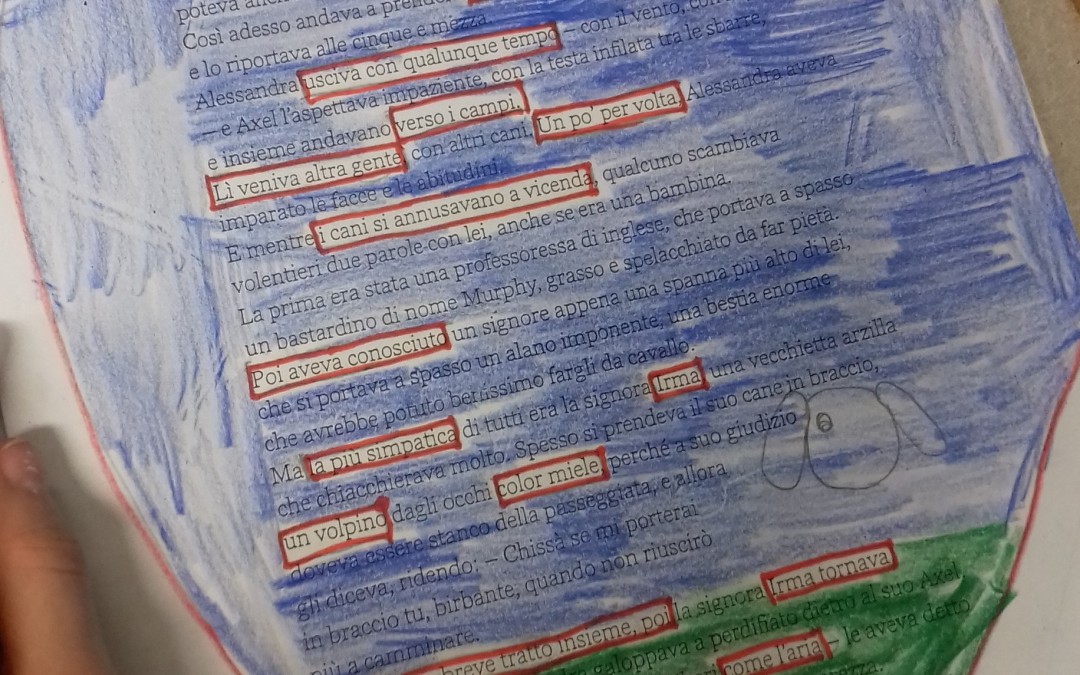 poteva
Così adesso andava a
e lo riportava alle cinque e mezza.
Alessandra usciva con qualunque tempo – con il vento,
– e Axel l'aspettava impaziente, con la testa infilata tra le sbarre,
e insieme andavano verso i campi.
Lì veniva altra gente, con altri cani. Un po' per volta, Alessandra aveva
imparato le facce e le abitudini.
E mentre i cani si annusavano a vicenda, qualcuno scambiava
volentieri due parole con lei, anche se era una bambina.
La prima era stata una professoressa di inglese, che portava a spasso
un bastardino di nome Murphy, grasso e spelacchiato da far pietà.
Poi aveva conosciuto un signore appena una spanna più alto di lei,
che si portava a spasso un alano imponente, una bestia enorme
che avrebbe potuto benissimo fargli da cavallo.
Ma la più simpatica di tutti era la signora Irma, una vecchietta arzilla
che chiacchierava molto. Spesso si prendeva il suo cane in braccio,
un volpino dagli occhi color miele, perché a suo giudizio
doveva essere stanco della passeggiata, e allora
gli diceva, ridendo: – Chissà se mi porterai
in braccio tu, birbante, quando non riuscirò
più a camminare.
breve tratto insieme, poi la signora Irma tornava
galoppava a perdifiato dietro al suo Axel
come l'aria – le aveva detto